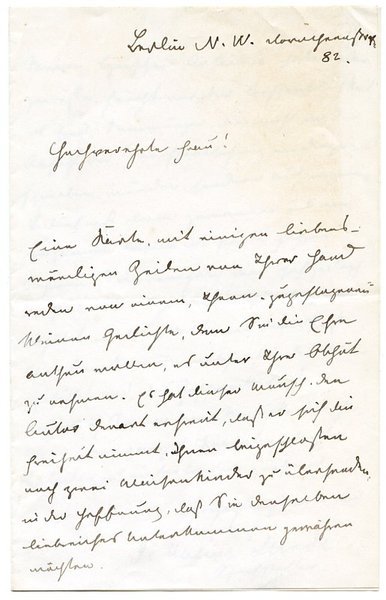 Berlin N. W. Dorotheenstr.
82.
Hochverehrte Frau!
Eine Karte, mit einigen liebens-
würdigen Zeilen von Ihrer Hand
reden von einem, Ihnen zugeflogenen
kleinen Gedichte, dem Sie die Ehre
anthun wollen, es unter Ihre Obhut
zu nehmen. Es hat dieser Wunsch den
Autor derart erfreut, daß er sich die
Freiheit nimmt, Ihnen beigeschlossen
noch zwei Waisenkinder zu übersenden,
in der Hoffnung, daß Sie denselben
liebreiches Unterkommen gewähren
möchten.